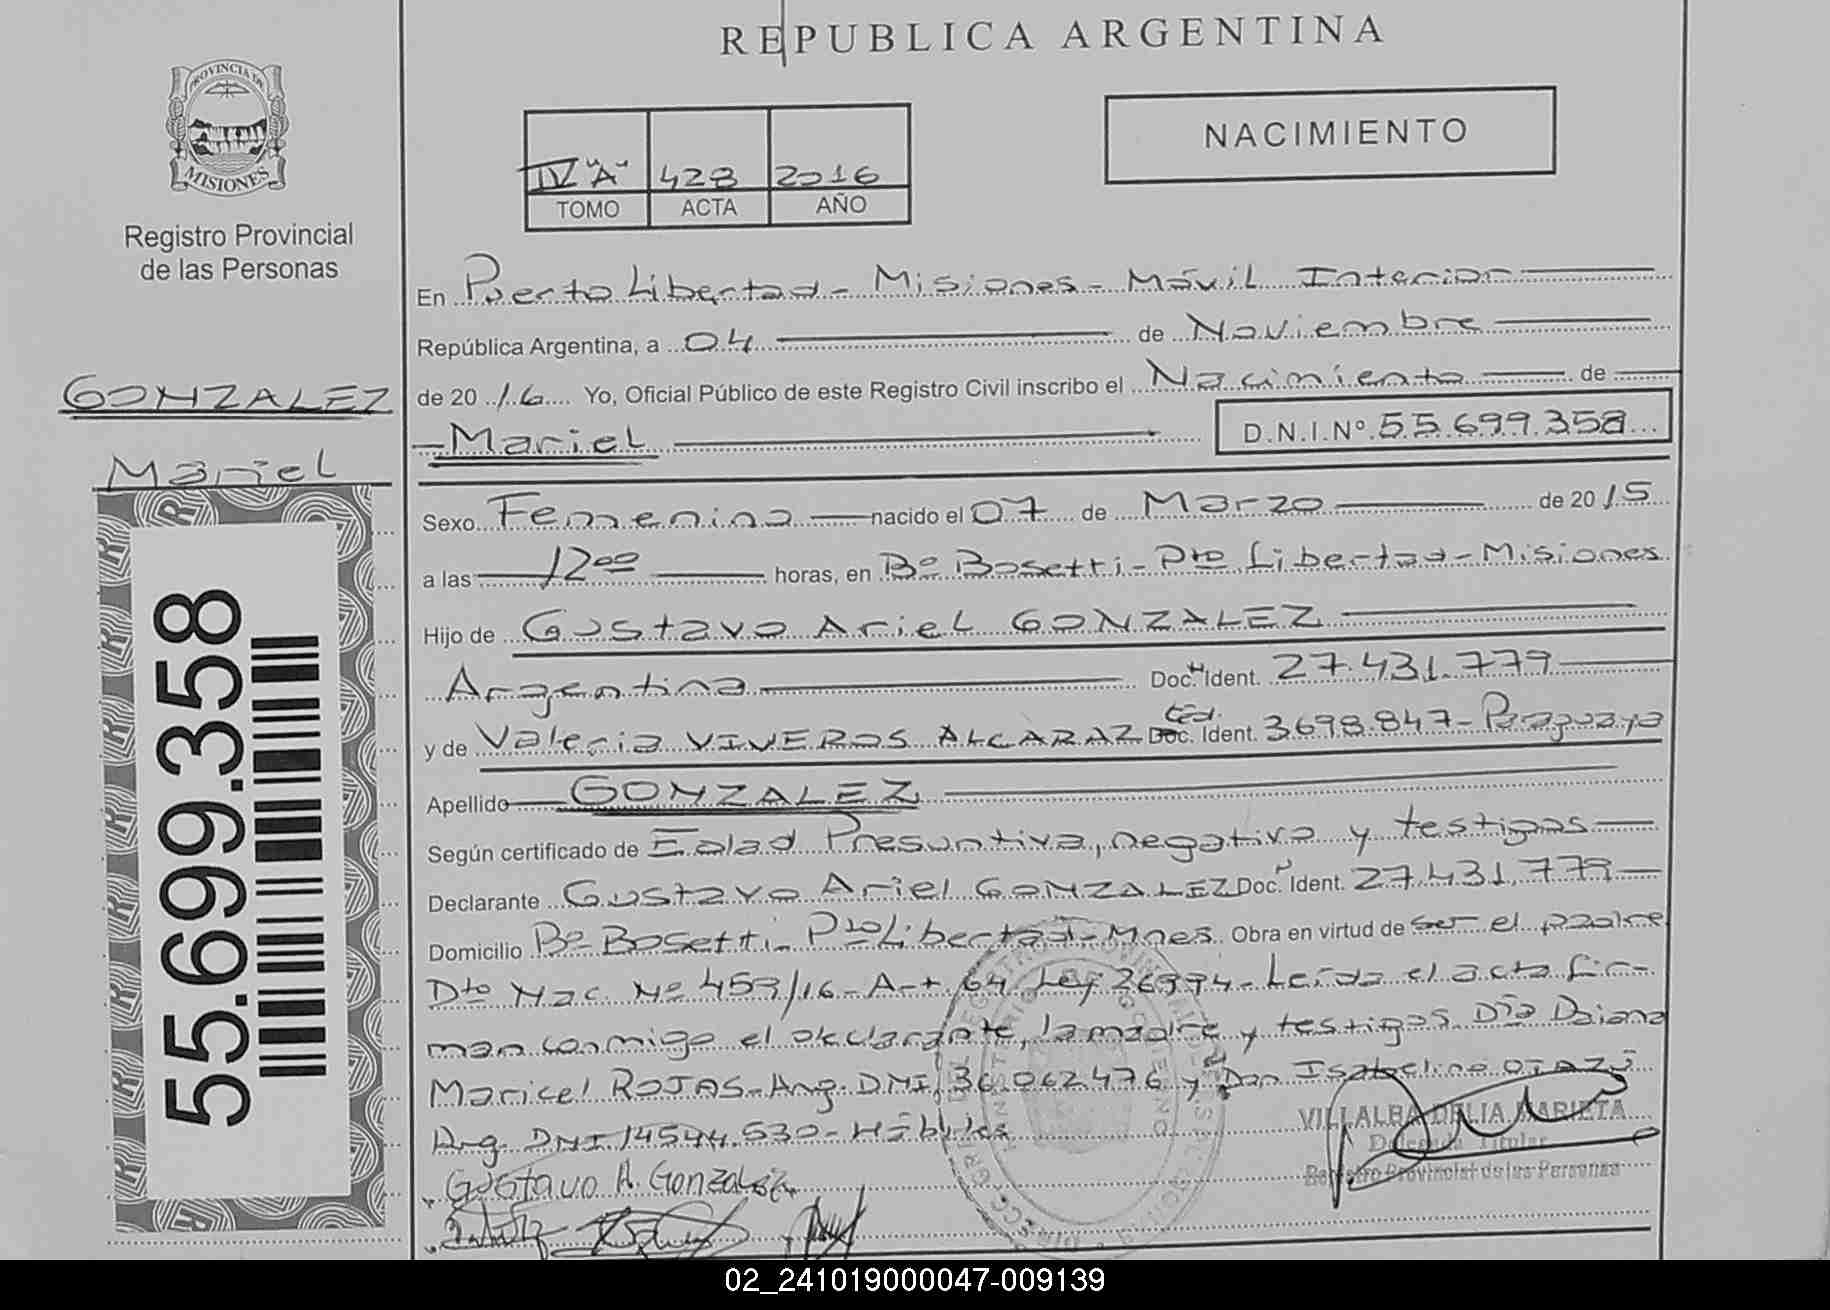 REPUBLICA ARGENTINA
PROVINCIA DE
MISIONES
Registro Provincial
de las Personas
IV "A" 428 2016
TOMO ACTA AÑO
NACIMIENTO
GONZALEZ
Mariel
55.699.358
En Puerto Libertad - Misiones - Móvil Interior
República Argentina, a 04 de Noviembre
de 20 16 Yo, Oficial Público de este Registro Civil inscribo el Nacimiento de
Mariel D.N.I.Nº 55.699.358
Sexo Femenino nacido el 07 de Marzo de 20 15
a las 12 00 horas, en Bº Bosetti - Pto Libertad - Misiones
Hijo de Gustavo Ariel GONZALEZ
Argentina Doc. Ident. 27.431.779
y de Valeria VIVEROS ALCARAZ Ced. Doc. Ident. 3698.847 - Paraguaya
Apellido GONZALEZ
Según certificado de Edad Presuntiva, negativa y testigos
Declarante Gustavo Ariel GONZALEZ Doc. Ident. 27.431.779
Domicilio Bº Bosetti Pto Libertad - Mnes Obra en virtud de ser el padre
Dto Nac. Nº 459/16 - Art 64 Ley 26994 - Leida el acta fir-
man conmigo el declarante, la madre y testigos Dña Daiana
Maricel ROJAS - Arg. DNI 36.062.476 y Don Isabelino OTAZÚ
Arg. DNI 14544.530 - Hábiles
Gustavo A. Gonzalez
VILLALBA DELIA MARIETA
Delegada Titular
Registro Provincial de las Personas
02_241019000047-009139